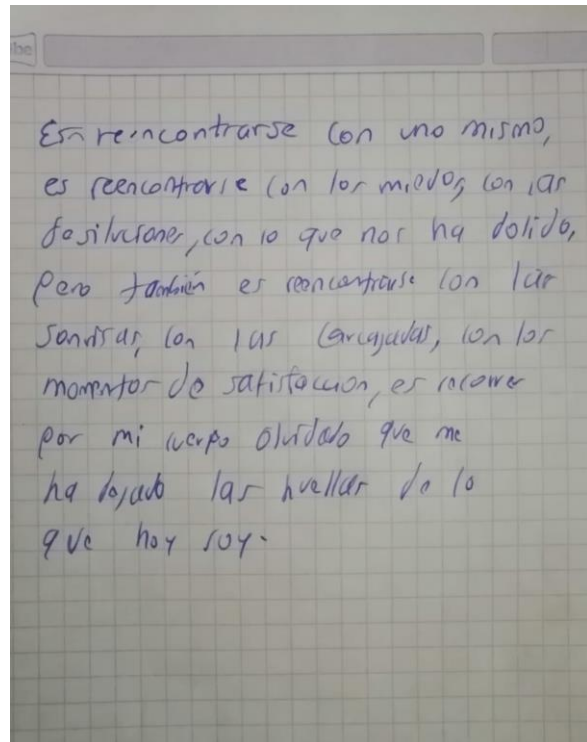 be
Es reincontrarse con uno mismo,
es reencontrarse con los miedos, con las
desiluciones, con lo que nos ha dolido,
pero también es reencontrarse con las
sonrisas, con las carcajadas, con los
momentos de satisfaccion, es recorrer
por mi cuerpo olvidado que me
ha dejado las huellas de lo
que hoy soy.